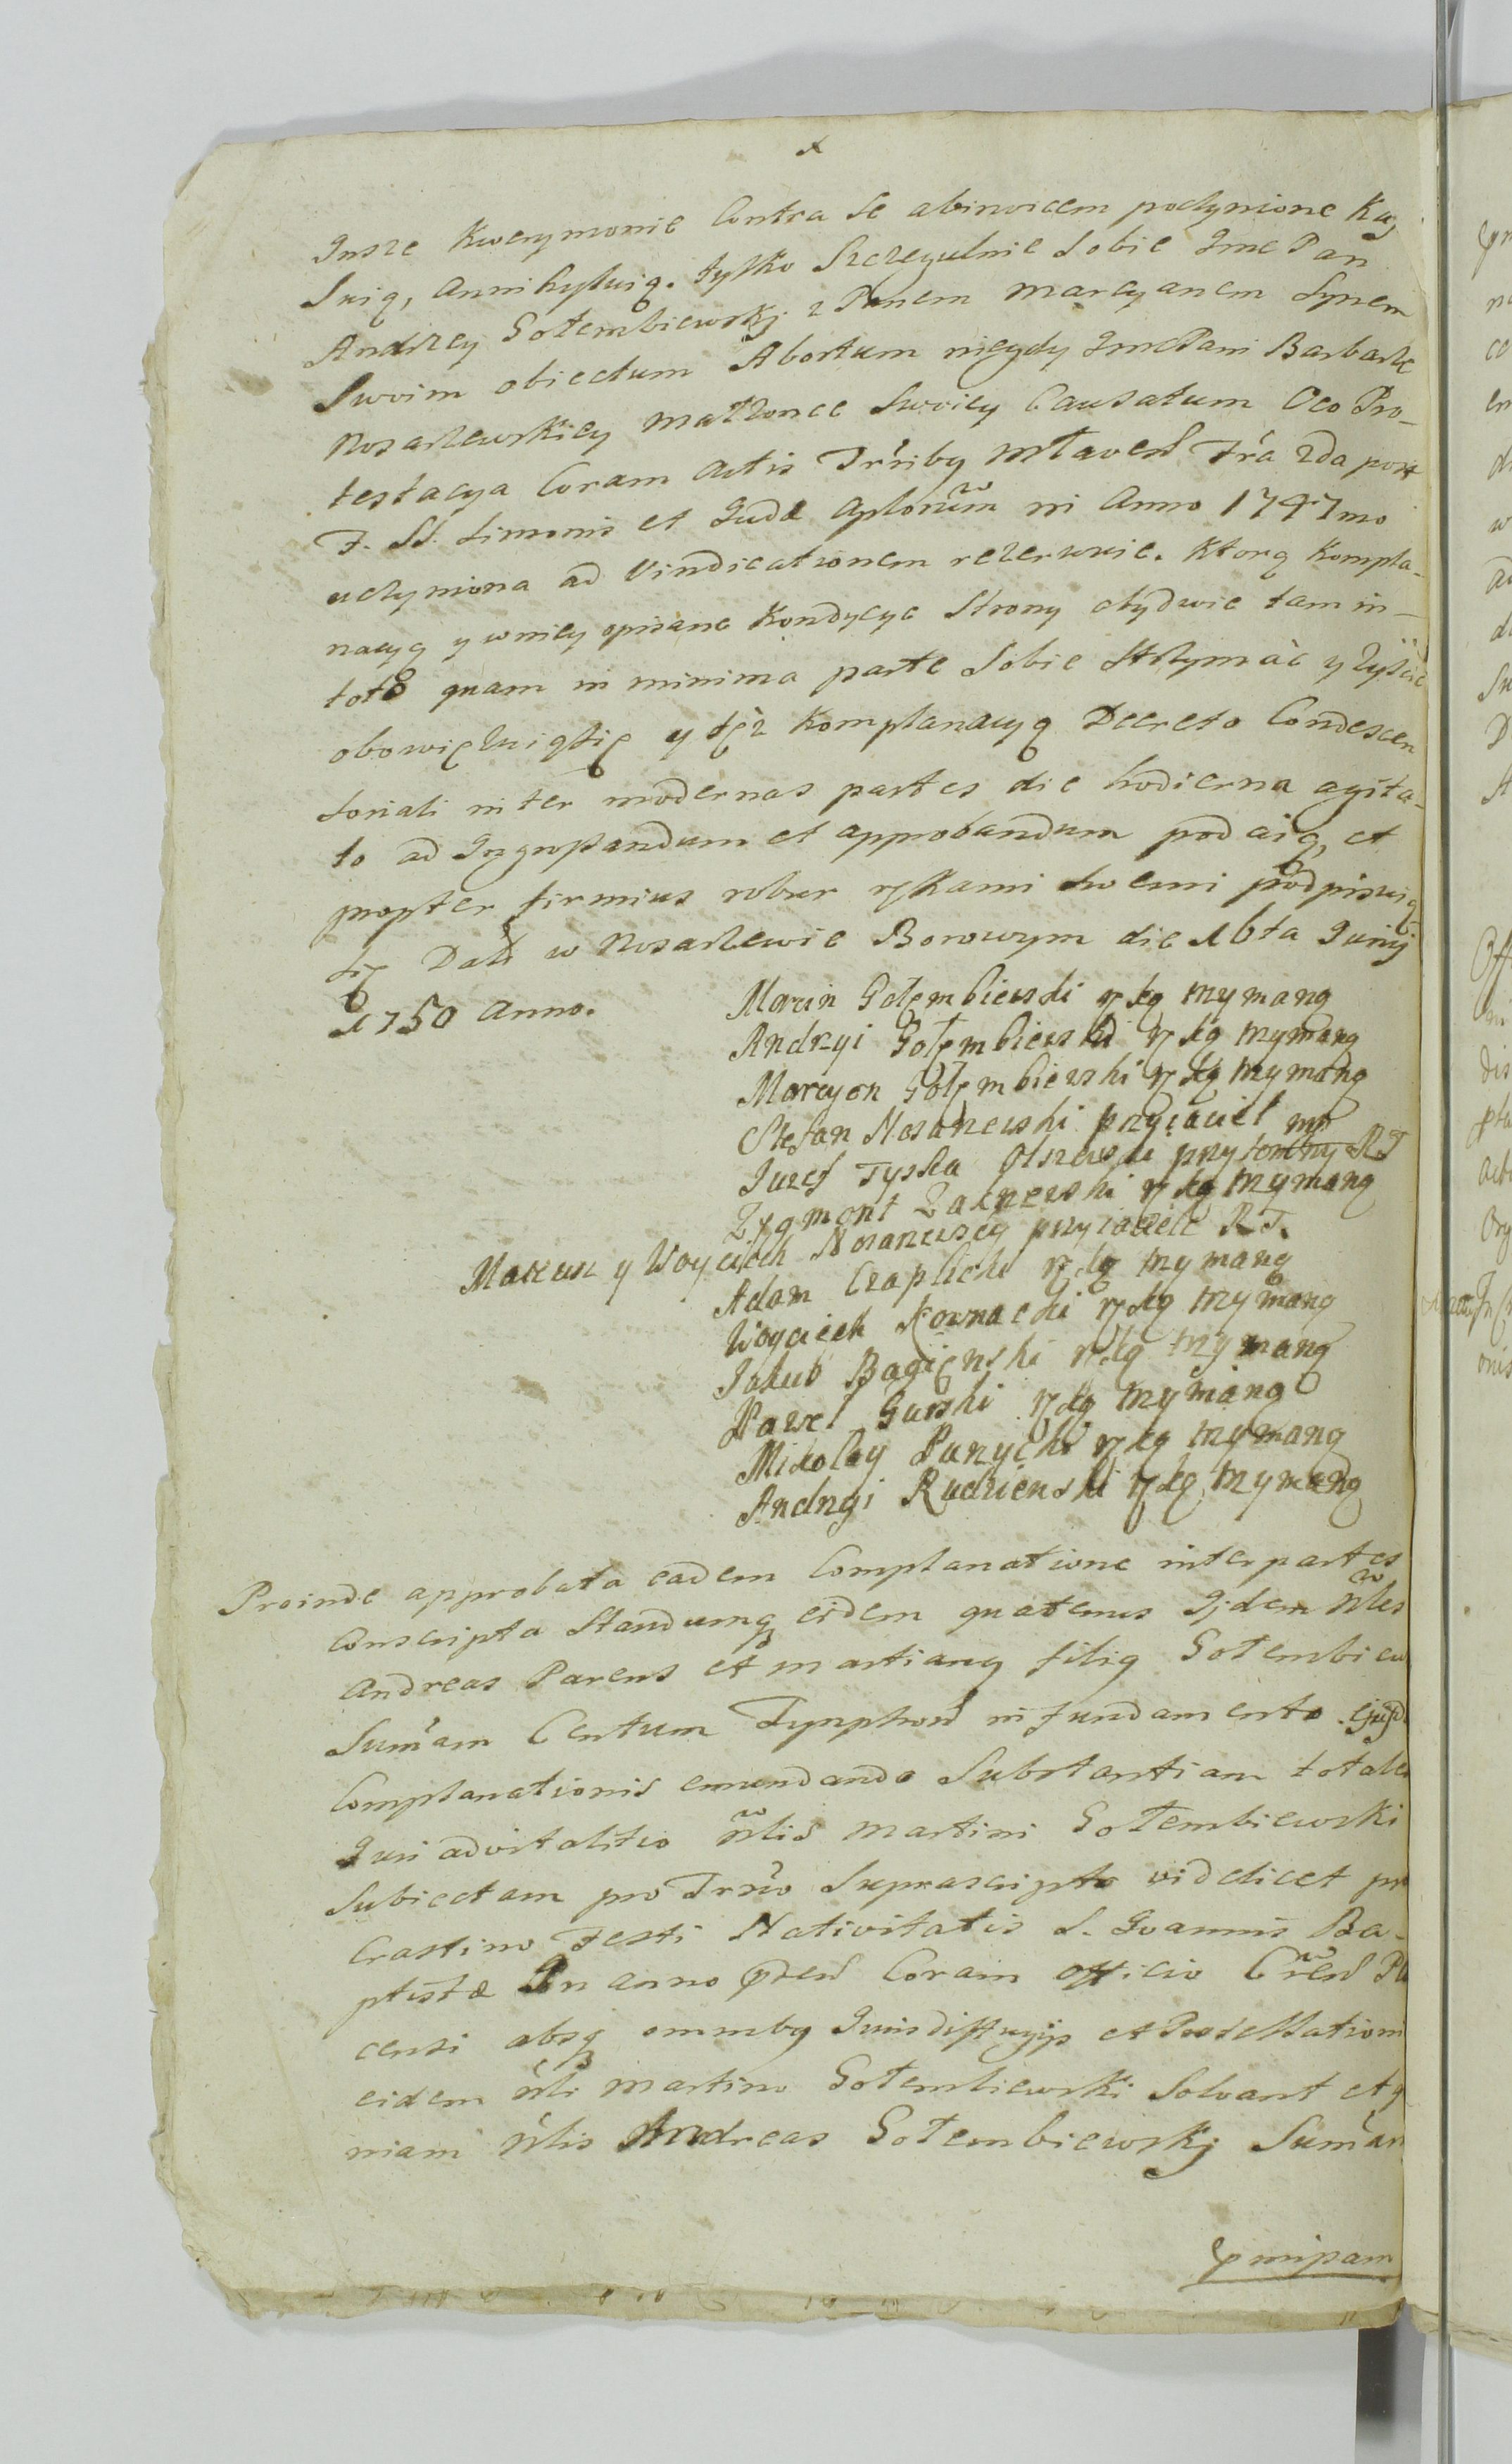 Insze Kwerymonie Contra se abinvicem poczynione Kas-
suią, annihyluią. tylko Szczegulnie Sobie Imc Pan
Andrzey Gołembiewskj z Panem Marcyanem Synem
Swoim obiectum Abortum niegdy ImcPani Barbarze
Nosarzewskiey Małżonce Swoiey Causatum Oco Pro-
testacya Coram Actis Trrıby Młaven Fra 2da post
F. SS. Simonis et Judæ Aplorum in Anno 1747mo
uczyniona ad Vindicationem rezerwuie. Ktorą Kompla-
nacyą y wniey opisane Kondycye Strony obydwie tam in
toto quam in minima parte Sobie strzymać y zyścić
obowięzuiąsię y tęż Komplanacyą Decreto Condescen
soriali inter modernas partes die hodierna agita-
to ad Ingrossandum et approbandum podaią, et
propter firmius robur rękami swemi podpisuią
się Datt w Nosarzewie Borowym die 16ta Junij
1750 Anno.
Marcin Gołęmbiewski ręką trzymaną
Andrzyi Gołęmbiewski ręką trzymaną
Marcyan Gołęmbiewski ręką trzymaną
Stefan Nosarzewski przyiaciel mp
Iuzef Tyska Olszewski przytomny RT
Zygmont Zakrzewski ręką trzymaną
Mateusz y Woyciech Nosarzewscy przyiaciele RT.
Adam Czaplicki ręką trzymaną
Woyciech Kownacki ręką trzymaną
Iakub Bagięnski ręką trzymaną
Paweł Gurski ręką trzymaną
Mikołay Parzycki ręką trzymaną
Andrzyi Rudzienski ręką trzymaną
Proinde approbata eadem Complanatione inter partes
conscripta Standumq eidem quatenus Ijdem Nles
Andreas Parens et Martiany filiq Gołembiew
Sumam Centum Tynphon in fundamento ejusd
Complanationis enumdando Substantiam totale
Juri advitalitio Nlis Martini Gołembiewski
Subiectam pro Trno Suprascripto videlicet pro
Crastino Festi Nativitatis S. Joannis Ba-
ptistæ In anno præsen Coram officio Cren Pla
censi absq omniby Jurisdiffugijs et Protestationi
eidem Nli Martino Gołembiewski Solvant et q
niam Nlis Andreas Gołembiewskj Sumam